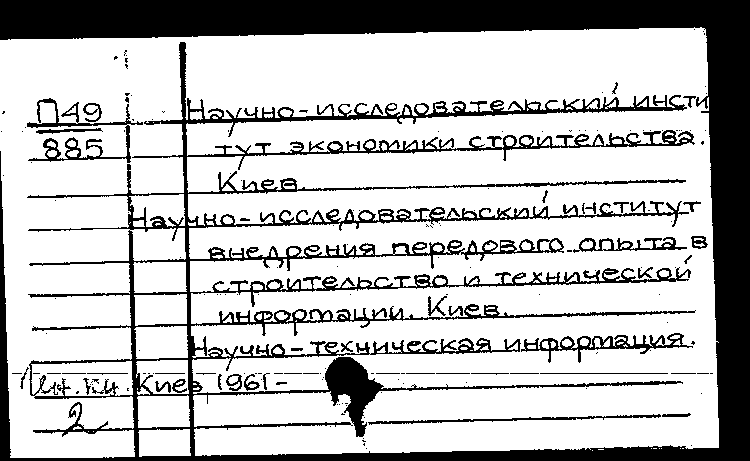 П49 Научно-исследовательский инсти
885 тут экономики строительства.
Киев.
Научно-исследовательский институт
внедрения передового опыта в
строительство и технической
информации. Киев.
Научно-техническая информация.
Ин. ки. Киев 1961-
2